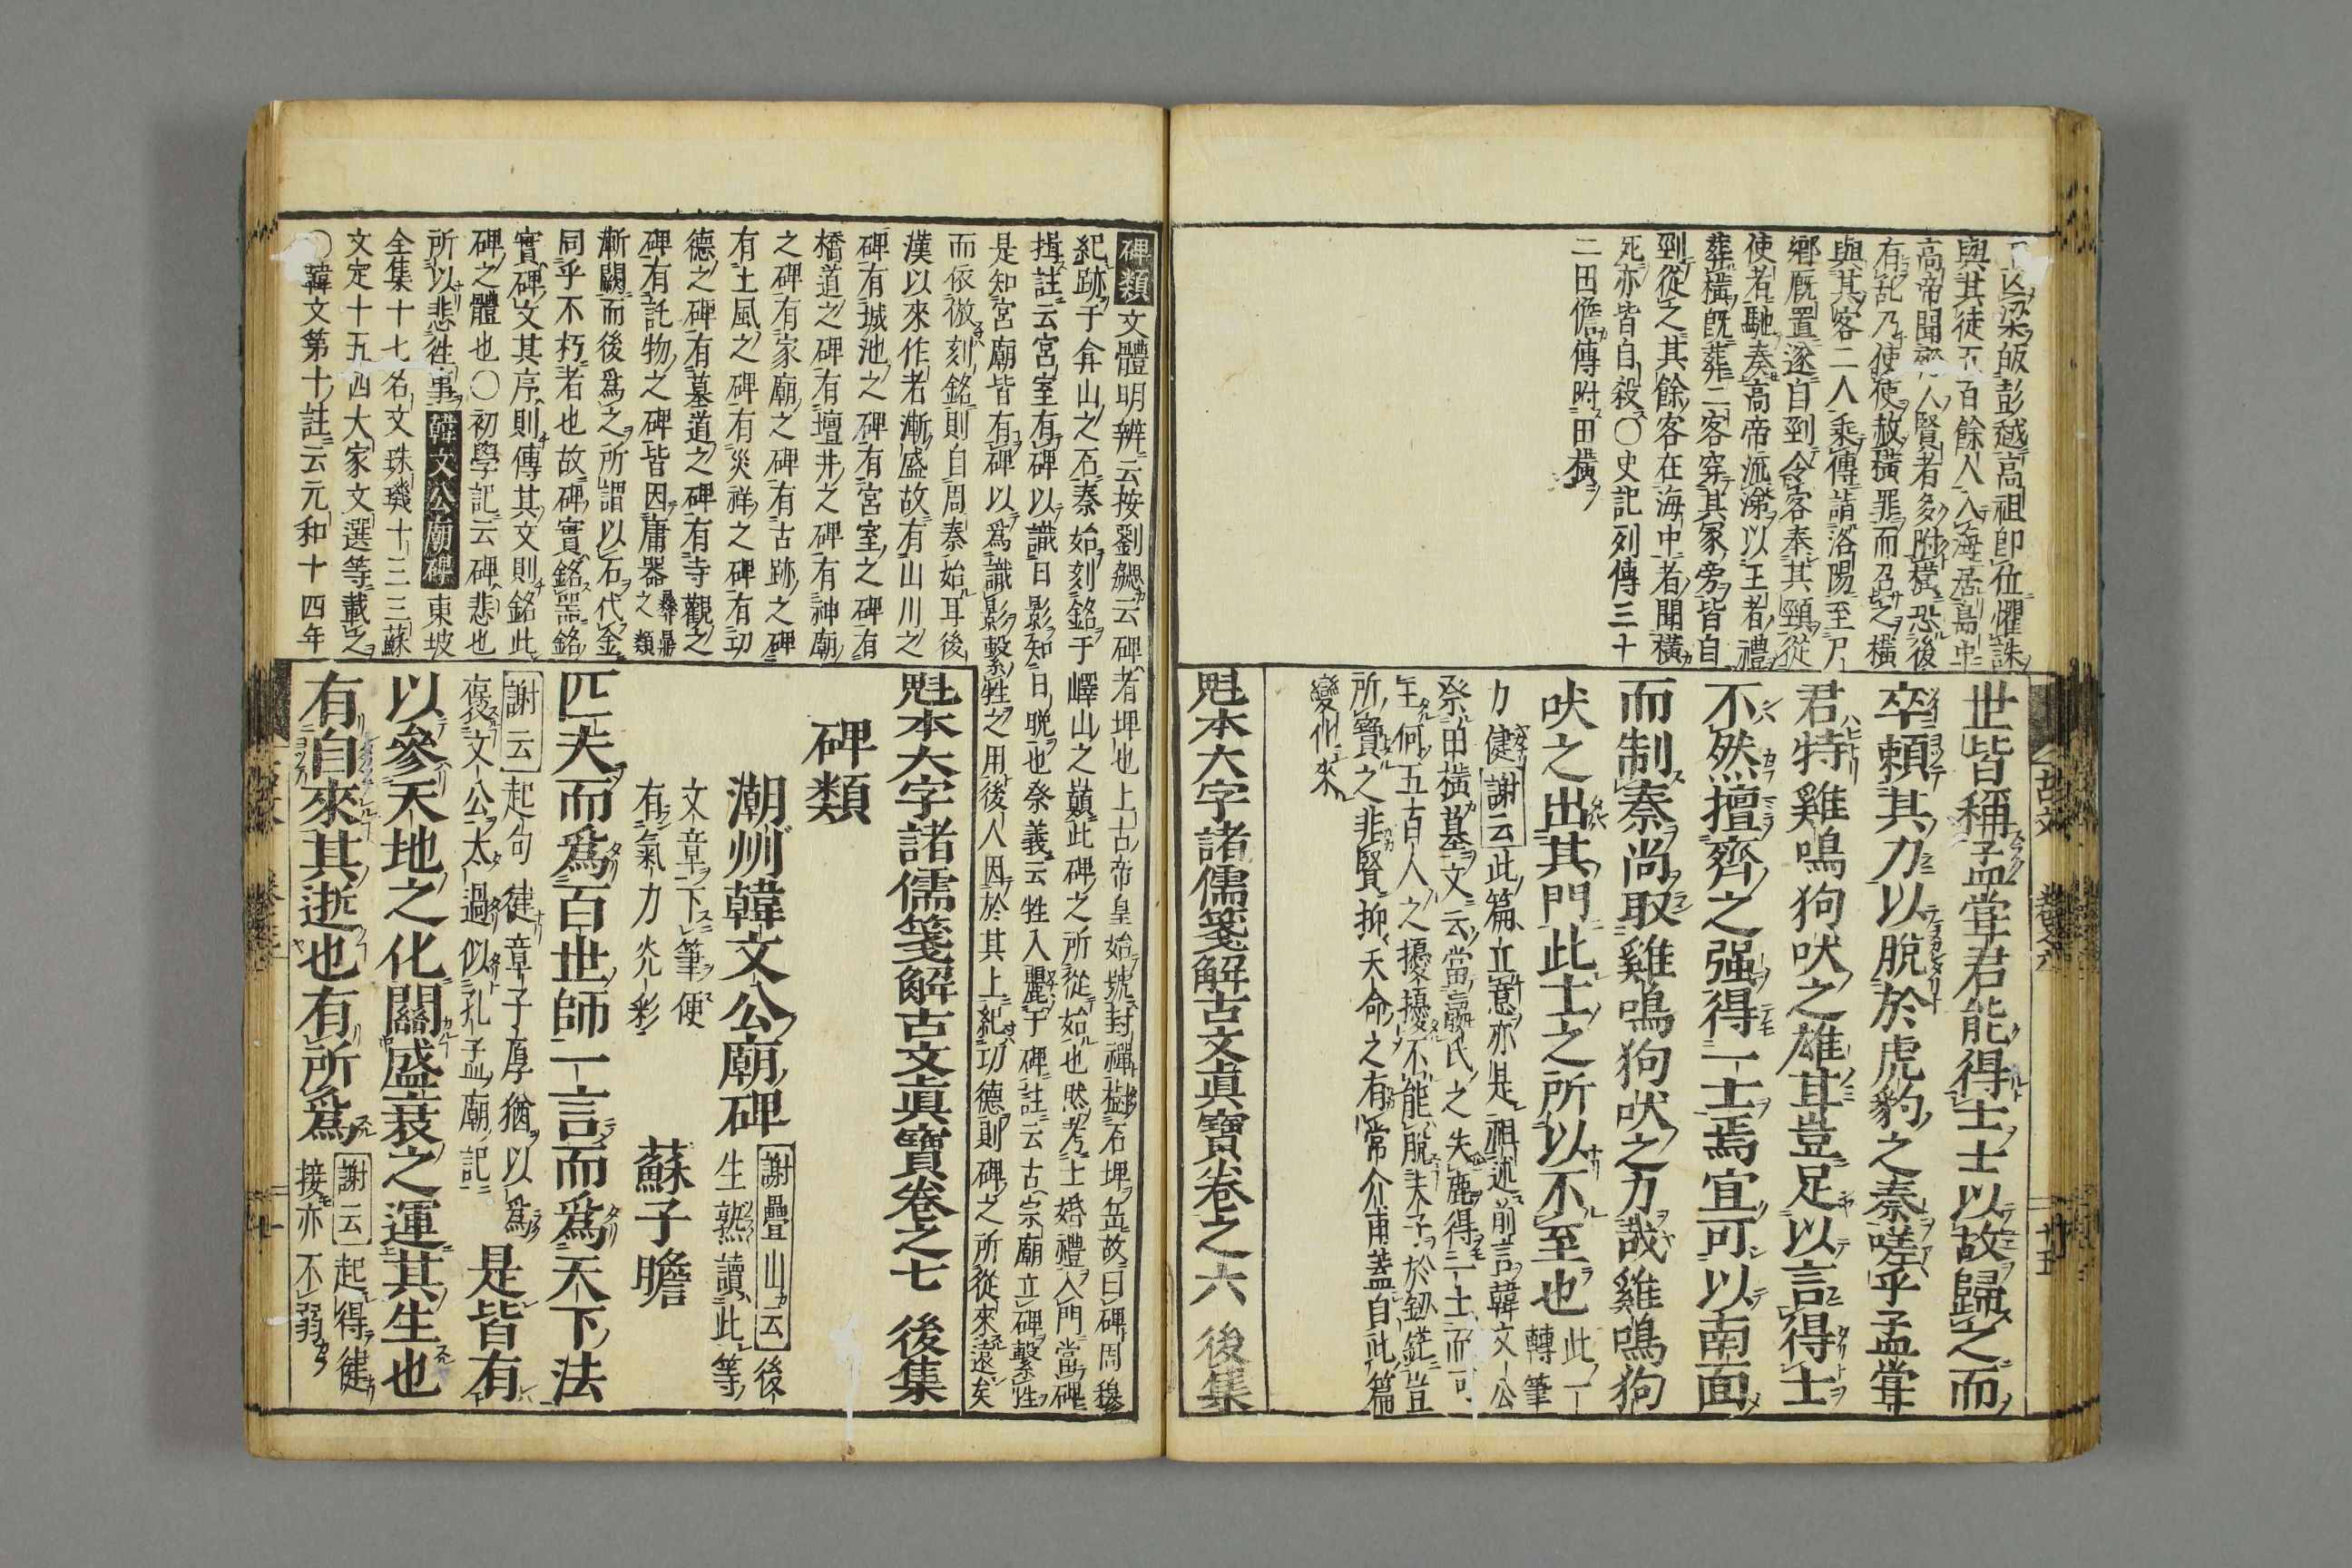 梁皈彭越高祖即位懼誅
與其徒五百餘人入海居島中
高帝聞齊人賢者多附橫恐後
有乱乃使使赦橫罪而召之橫
與其客二人乘傳詣洛陽至尸
鄉厩置遂自刭令客奉其頸從
使者馳奏高帝流涕以王者禮
葬橫既葬二客穿其冢旁皆自
刭從之其餘客在海中者聞橫
死亦皆自殺〇史記列傳三十
二田儋傳附田橫
世皆稱孟甞君能得士士以故歸之而
卒頼其力以脫於虎豹之秦嗟乎孟甞
君特雞鳴狗吠之雄耳豈足以言得士
不然擅齊之强得一士焉宜可以南面
而制秦尚取雞鳴狗吠之力哉雞鳴狗
吠之出其門此士之所以不至也 此一轉筆
力健 謝云 此篇立意亦是祖述前言韓文公
祭田橫墓文云當嬴氏之失鹿得一士而可
王何五百人之擾擾不能脫夫子於劔鋩豈
所寶之非賢抑天命之有常介甫蓋自此篇
變化來
魁本大字諸儒箋解古文眞寶卷之六 後集
碑類 文體明辨云按劉勰云碑者埤也上古帝皇始號封禪樹石埤岳故曰碑周穆
紀跡于弇山之石秦始刻銘于嶧山之巔此碑之所從始也然考士婚禮入門當碑
揖註云宮室有碑以識日影知日晩也祭義云牲入麗于碑註云古宗廟立碑繫牲
是知宮廟皆有碑以爲識影繫牲之用後人因於其上紀功德則碑之所從來遠矣
而依倣刻銘則自周秦始耳後
漢以來作者漸盛故有山川之
碑有城池之碑有宮室之碑有
橋道之碑有壇井之碑有神廟
之碑有家廟之碑有古跡之碑
有土風之碑有災祥之碑有功
德之碑有墓道之碑有寺觀之
碑有託物之碑皆因庸器彝鼎之類
漸闕而後爲之所謂以石代金
同乎不朽者也故碑實銘器銘
實碑文其序則傳其文則銘此
碑之體也〇初學記云碑悲也
所以悲徃事 韓文公廟碑 東坡
全集十七名文珠璣十三三蘇
文定十五四大家文選等載之
〇韓文第十註云元和十四年
魁本大字諸儒箋解古文眞寶卷之七 後集
碑類
潮州韓文公廟碑 謝疊山云 後生熟讀此等
文章下筆便有氣力光彩 蘇子瞻
匹夫而爲百世師一言而爲天下法
謝云 起句健章子厚猶以爲褒文公太過似孔孟廟記 是皆有
以參天地之化關盛衰之運其生也
有自來其逝也有所爲 謝云 起得健接亦不弱